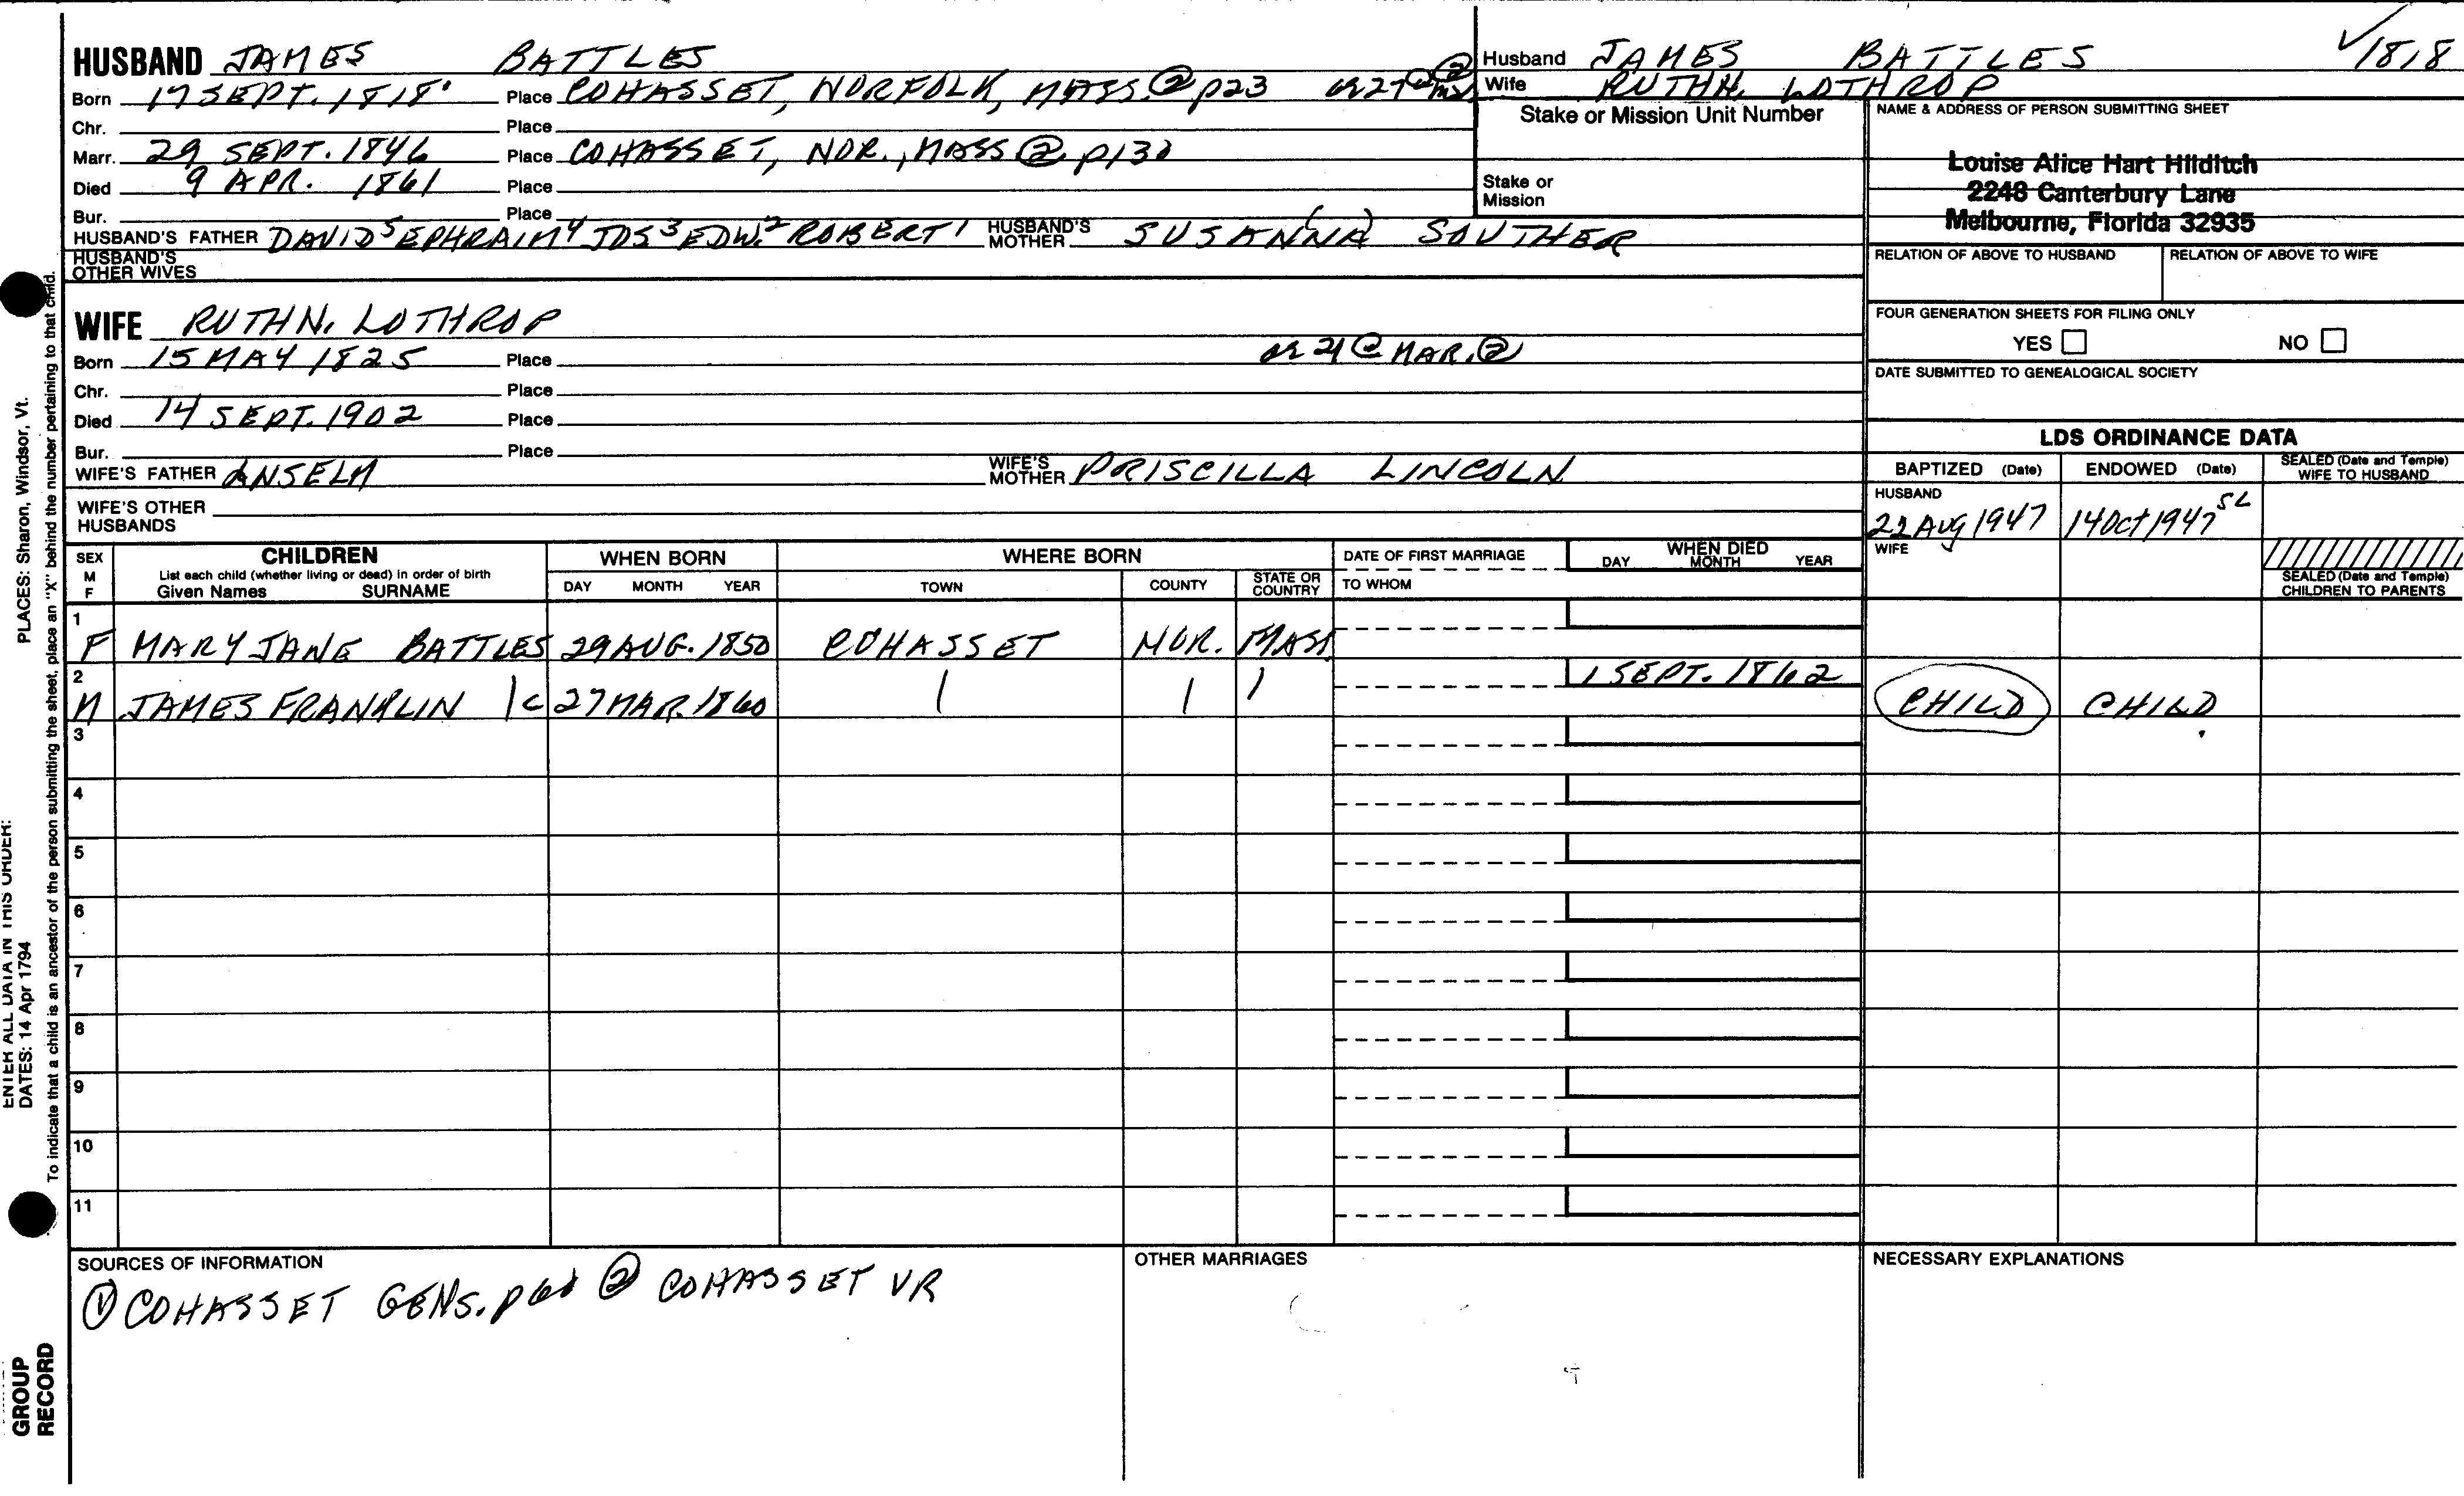 HUSBAND JAMES BATTLES
Born 17 SEPT. 1818 Place COHASSET, NORFOLK, MASS. ② p23
Chr. Place
Marr. 29 SEPT. 1846 Place COHASSET, NOR., MASS ② p130
Died 9 APR. 1861 Place
Bur. Place
HUSBAND'S FATHER DAVID⁵ EPHRAIM⁴ JOS³ EDW.² ROBERT¹ HUSBAND'S MOTHER SUSAN(NA) SOUTHER
HUSBAND'S OTHER WIVES
WIFE RUTH N. LOTHROP
Born 15 MAY 1825 Place 21 @ MAR. ②
Chr. Place
Died 14 SEPT. 1902 Place
Bur. Place
WIFE'S FATHER ANSELM WIFE'S MOTHER PRISCILLA LINCOLN
WIFE'S OTHER HUSBANDS
Husband JAMES BATTLES √1818
Wife RUTH N. LOTHROP
Stake or Mission Unit Number
Stake or Mission
NAME & ADDRESS OF PERSON SUBMITTING SHEET
Louise Alice Hart Hilditch
2248 Canterbury Lane
Melbourne, Florida 32935
RELATION OF ABOVE TO HUSBAND RELATION OF ABOVE TO WIFE
FOUR GENERATION SHEETS FOR FILING ONLY
YES NO
DATE SUBMITTED TO GENEALOGICAL SOCIETY
LDS ORDINANCE DATA
BAPTIZED (Date) ENDOWED (Date) SEALED (Date and Temple) WIFE TO HUSBAND
HUSBAND
22 AUG 1947 14 Oct 1947 SL
WIFE
SEALED (Date and Temple) CHILDREN TO PARENTS
SEX M F
CHILDREN
List each child (whether living or dead) in order of birth
Given Names SURNAME
WHEN BORN
DAY MONTH YEAR
WHERE BORN
TOWN COUNTY STATE OR COUNTRY
DATE OF FIRST MARRIAGE
TO WHOM
WHEN DIED
DAY MONTH YEAR
1 F MARY JANE BATTLES 29 AUG. 1850 COHASSET NOR. MASS
2 M JAMES FRANKLIN 27 MAR. 1860 1 SEPT. 1862 CHILD CHILD
3
4
5
6
7
8
9
10
11
SOURCES OF INFORMATION
① COHASSET GENS. ② COHASSET VR
OTHER MARRIAGES
NECESSARY EXPLANATIONS
ENTER ALL DATA IN THIS ORDER:
DATES: 14 Apr 1794
PLACES: Sharon, Windsor, Vt.
To indicate that a child is an ancestor of the person submitting the sheet, place an "X" behind the number pertaining to that child.
GROUP
RECORD